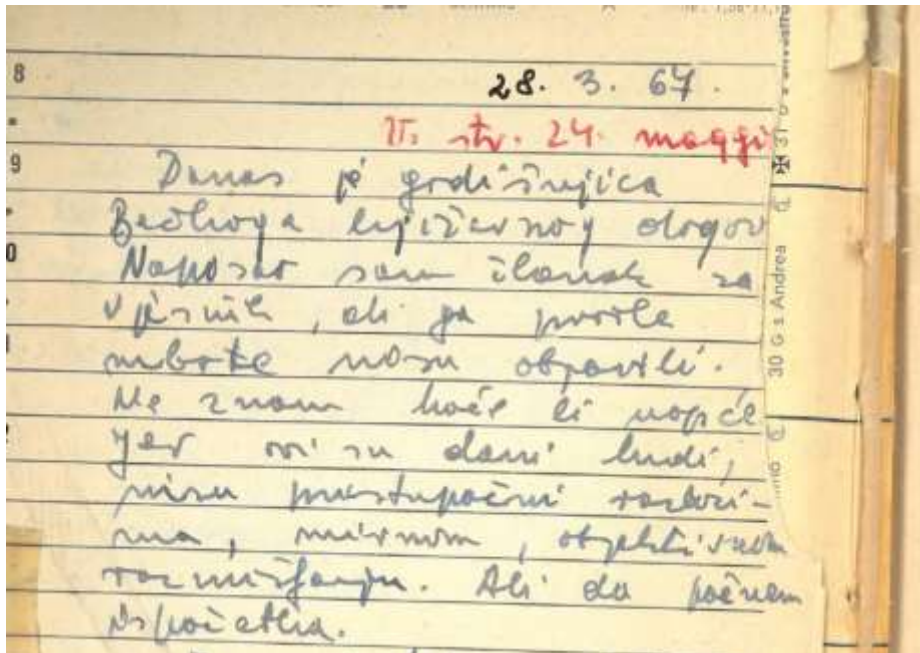 28. 3. 67.
str. 24. maggi
Danas je godišnjica
Bečkoga književnog dogov
Napisao sam članak za
Vjesnik, ali ga prošle
subote nisu objavili.
Ne znam hoće li uopće
jer svi su dani ludi,
nisu pristupačni razlozi-
ma, mirnom, objektivnom
razmišljanju. Ali da počnem
ispočetka.
8
9
0
31 G s
30 G s Andrea